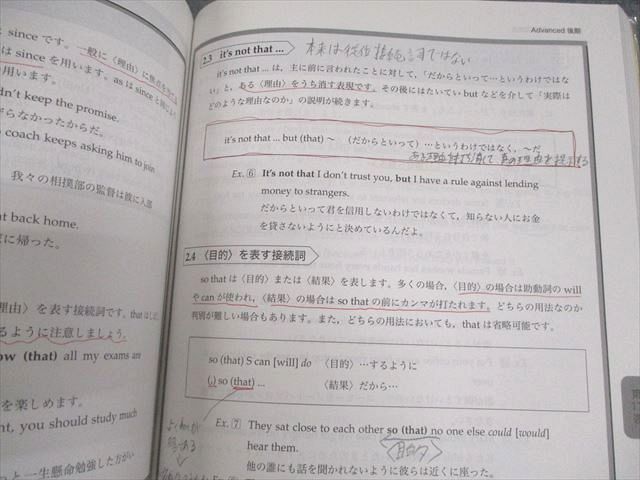 since です。一般に〈理由〉に焦点を
は since を用います。as は since と同じ
用います。
n't keep the promise.
らなかったからだ。
coach keeps asking him to join
我々の相撲部の監督は彼に入部
at back home.
に帰った。
理由〉を表す接続詞です。that は
るように注意しましょう。
ow (that) all my exams are
を楽しめます。
nt, you should study much
と一生懸命勉強した方がい
Advanced 後期
2.3 it's not that ... 本来は従位接続詞ではない
it's not that ... は，主に前に言われたことに対して，「だからといって…というわけではな
い」と，ある〈理由〉をうち消す表現です。その後にはたいてい but などを介して「実際は
どのような理由なのか」の説明が続きます。
it's not that ... but (that) ～ （だからといって）…というわけではなく，～だ
Ex. ⑥ It's not that I don't trust you, but I have a rule against lending
money to strangers.
だからといって君を信用しないわけではなくて，知らない人にお金
を貸さないようにと決めているんだよ。
2.4 〈目的〉を表す接続詞
so that は〈目的〉または〈結果〉を表します。多くの場合，〈目的〉の場合は助動詞の will
や can が使われ，〈結果〉の場合は so that の前にカンマが打たれます。どちらの用法なのか
判別が難しい場合もあります。また，どちらの用法においても，that は省略可能です。
so (that) S can [will] do 〈目的〉…するように
(,) so (that) ... 〈結果〉だから…
Ex. ⑦ They sat close to each other so (that) no one else could [would]
hear them. 〈目的〉
他の誰にも話を聞かれないように彼らは近くに座った。